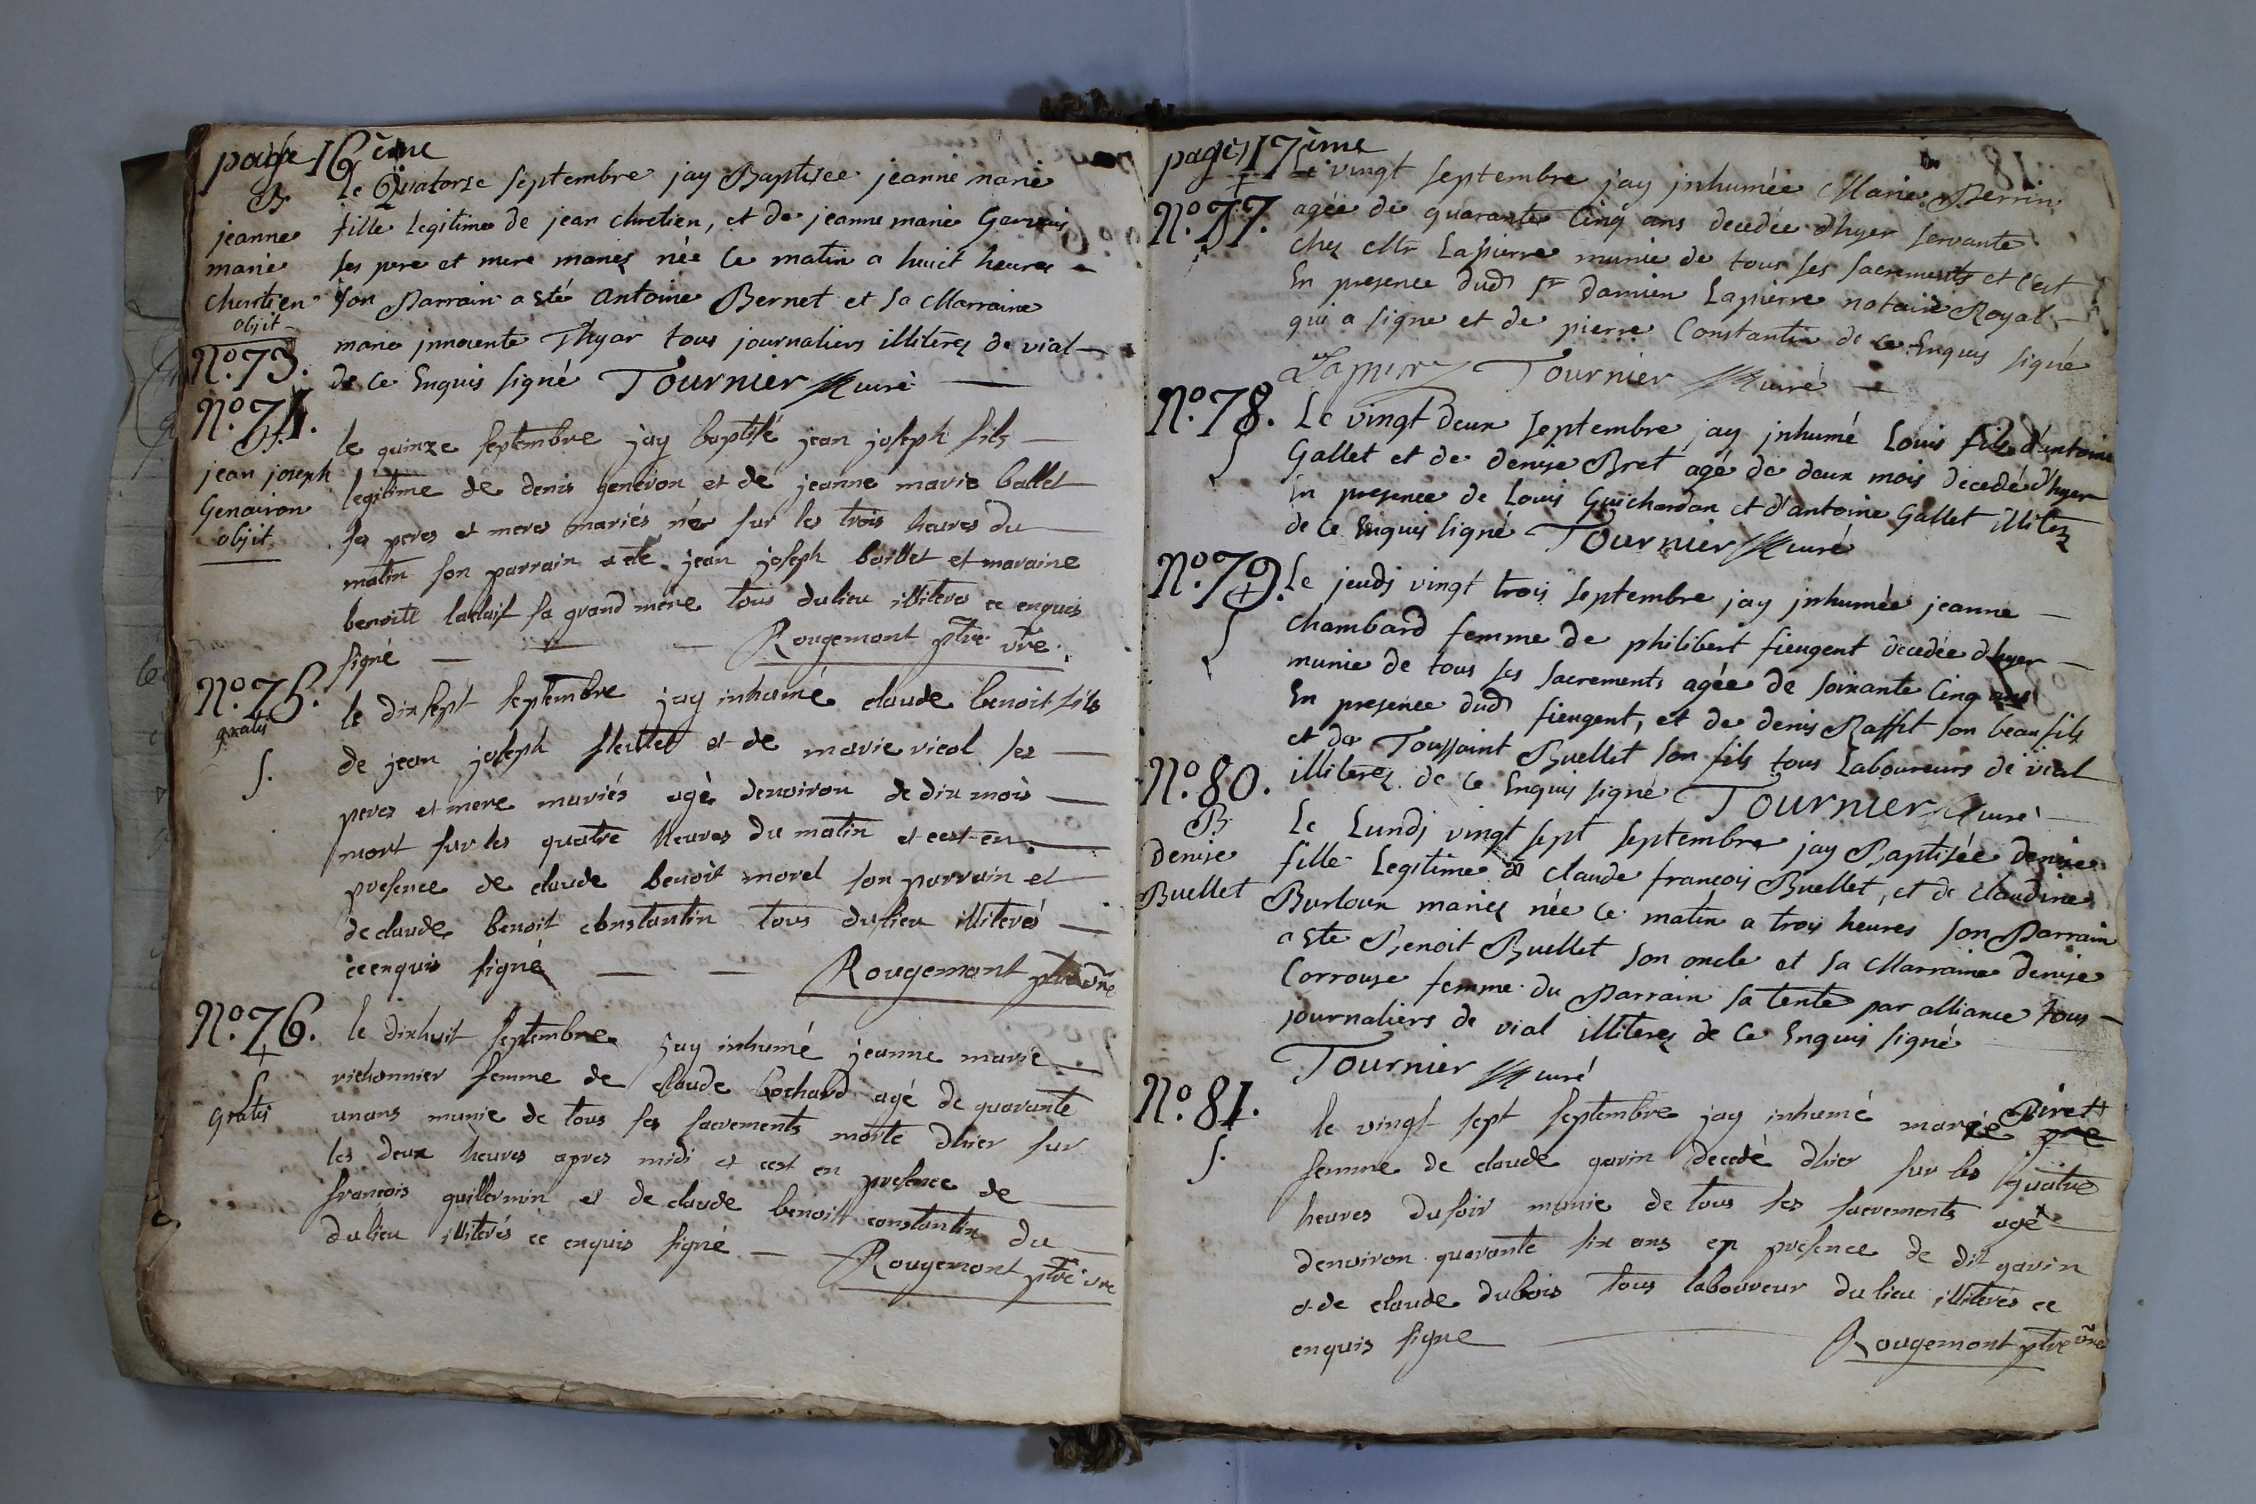 page 16ème
B.
jeanne
marie
chretien
objit
N.º 73.
Le Quatorze septembre jay Baptisée jeanne marie
fille legitime de jean chretien, et de jeanne marie Gervais
ses pere et mere mariez née ce matin a huict heures
son Parrain a esté antoine Bernet et sa Marraine
marie jnnocente Thyar tous journaliers illiterez de vial
de ce Enquis signé Tournier curé
N.º 74.
B.
jean joseph
Genairon
objit
le quinze septembre jay baptisé jean joseph fils
legitime de denis genevon et dé jeanne marie ballet
ses peres et meres mariés née sur les trois heures du
matin son parrain a été jean joseph baillet et maraine
benoite sa grand mere tous du lieu illiteres ce enquis
signé Rougemont ptre vre.
N.º 75.
gratis
S.
le dix sept septembre jay inhumé claude benoit fils
de jean joseph et de marie vicol ses
peres et mere mariés agé denviron de dix mois
mort sur les quatre heures du matin et cest en
presence de claude benoit morel son parrain et
de claude benoit constantin tous du lieu illiterés
ce enquis signé Rougemont ptre vre
N.º 76.
+
S
Gratis
le dixhuit septembre jay inhumé jeanne marie
richonnier femme de claude bochard agé de quarante
un ans munie de tous ses sacrements morte dhier sur
les deux heures apres midi et cest en presence de
françois guillermin et de claude benoit constantin du
du lieu illiterés ce enquis signé Rougemont ptre vre
page 17ème
+
N.º 77.
S
Le vingt septembre jay jnhumée Marie Perrin
agée de quarante Cinq ans decedée d'hyer servante
chez Mr Lapierre munie de tous ses sacrements et c'est
En presence dud Sr Damien Lapierre notaire Royal
qui a signe et de pierre Constantin de ce Enquis signé
Lapierre Tournier curé
N.º 78.
S
Le vingt deux septembre jay jnhumé Louis fils d'antoine
Gallet et de denise Bret agé de deux mois decedé d'hyer
En presence de Louis Guichardan et d'antoine Gallet illiterez
de ce Enquis signé Tournier curé
N.º 79.
+
S
Le jeudj vingt trois septembre jay jnhumée jeanne
chambard femme de philibert fieugent decedée d'hyer
munie de tous ses sacrements agée de soixante Cinq ans
En presence dud fieugent, et de denis Raffit son beau fils
et de Toussaint Buellet son fils tous Laboureurs de vial
illiterez de ce Enquis signé Tournier curé
N.º 80.
B
denise
Buellet
Le Lundj vingt sept septembre jay Baptisée denise
fille Legitime de Claude françois Buellet, et de Claudine
Burloux mariez née ce matin a trois heures son Parrain
a esté Benoit Buellet son oncle et sa Marraine denise
Corrouse femme du Parrain sa tente par alliance tous
journaliers de vial illiterez de ce Enquis signé
Tournier curé
N.º 81.
S.
le vingt sept septembre jay inhumé marie Piret
femme de claude gavin decedé dhier sur les quatre
heures du soir munie de tous ses sacrements agé
denviron quarante six ans en presence de dit gavin
et de claude dubois tous laboureur du lieu illiterés ce
enquis signe Rougemont ptre vre